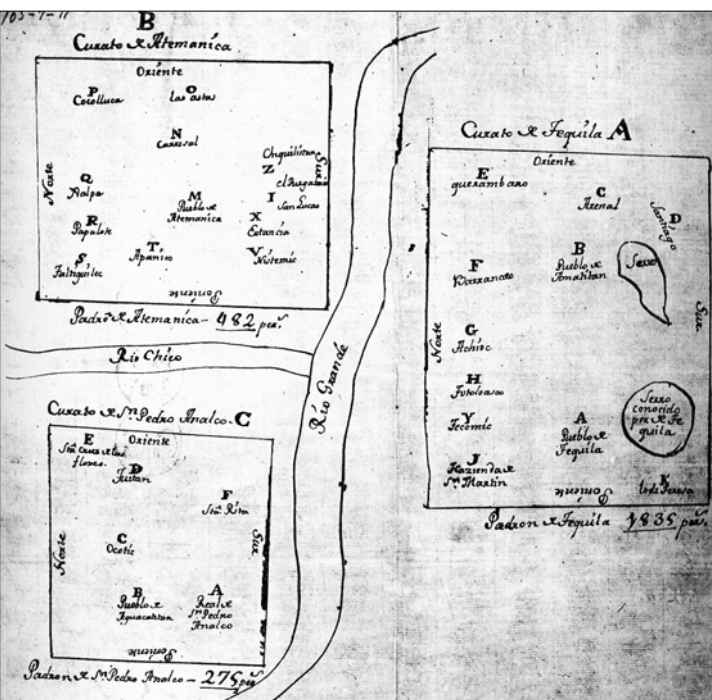 103-9-11
B
Curato de Atemanica
Oriente
P
Cocolluca
O
las astas
N
Carrisal
Chquilistan
Sur
Z
el Rugatan
Norte
Q
Nalpa
M
Pueblo de
Atemanica
I
San Lucas
R
Papalote
X
Estancia
S
T
Apanico
V
Nistemic
Poniente
Padron de Atemanica - 482 pers.
Rio Chico
Rio Grande
Curato de Sn. Pedro Analco. C
E
Sta. Cruz de las
flores.
Oriente
D
Justan
F
Sta. Rita
Norte
Sur
C
Ocotic
B
Pueblo de
Aguacatitan
A
Real de
Sn. Pedro
Analco
Poniente
Padron de Sn. Pedro Analco - 275 pers.
Curato de Tequila A
Oriente
E
querambaro
C
Arenal
D
Santiago
F
Barrancato
B
Pueblo de
Amatitan
Serro
Norte
Sur
G
Achirc
H
Y
Tecomic
A
Pueblo de
Tequila
Serro
conocido
por de Te
quila
J
Hazienda de
Sn. Martin
K
Poniente
Padron de Tequila 1835 pers.